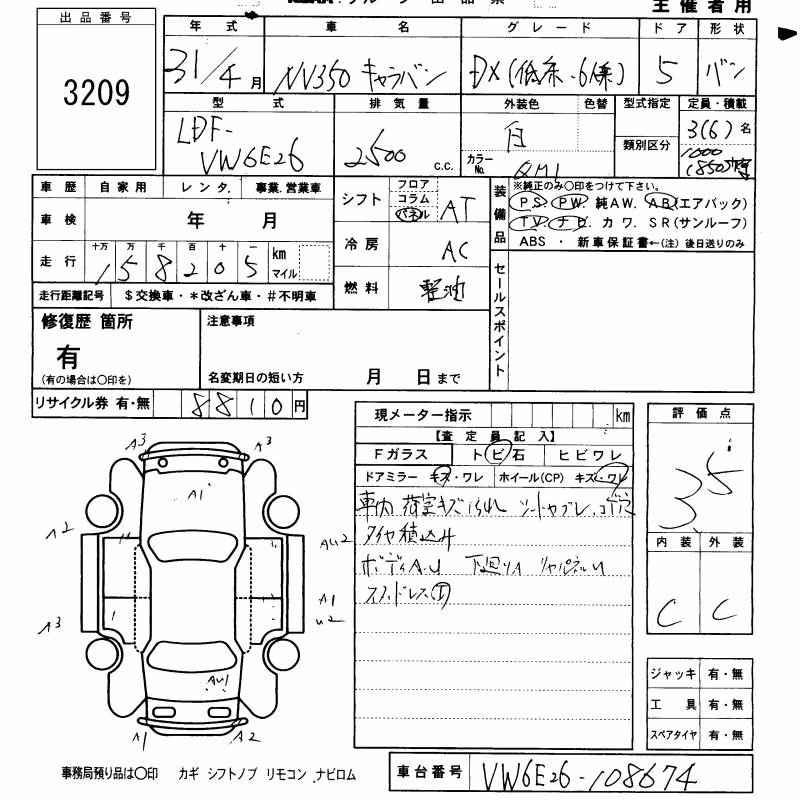 主催者用
出品番号
3209
年式 車名 グレード ドア 形状
31/4月 NV350 キャラバン DX(低床・6人乗) 5 バン
型式 排気量 外装色 色替 型式指定 定員・積載
LDF-VW6E26 2500 c.c. 白 類別区分 3(6)名
カラーNo. QM1 1000(850)
車歴 自家用 レンタ. 事業.営業車
車検 年 月
走行 十万 万 千 百 十 一 km マイル
158205
走行距離記号 $交換車・*改ざん車・#不明車
シフト フロア コラム パネル AT
冷房 AC
燃料 軽油
装備品 ※純正のみ〇印をつけて下さい。
PS PW 純AW. AB(エアバック)
TV ナビ. カワ. SR(サンルーフ)
ABS ・ 新車保証書←(注) 後日送りのみ
セールスポイント
修復歴 箇所
有
(有の場合は〇印を)
注意事項
名変期日の短い方 月 日まで
リサイクル券 有・無 8810円
現メーター指示 km
【査定員記入】
Fガラス トビ石 ヒビワレ
ドアミラー キズ・ワレ ホイール(CP) キズ・ワレ
車内 荷室キズ汚れ シートヤブレ、コゲ穴
タイヤ積込み
ボディA.U 下廻りA
スタッドレス
評価点
3.5
内装 外装
C C
ジャッキ 有・無
工具 有・無
スペアタイヤ 有・無
A3 A3
A1
A2
AU2
A1
U2
A3
AU1
A1 A2
事務局預り品は〇印 カギ シフトノブ リモコン ナビロム
車台番号 VW6E26-108674